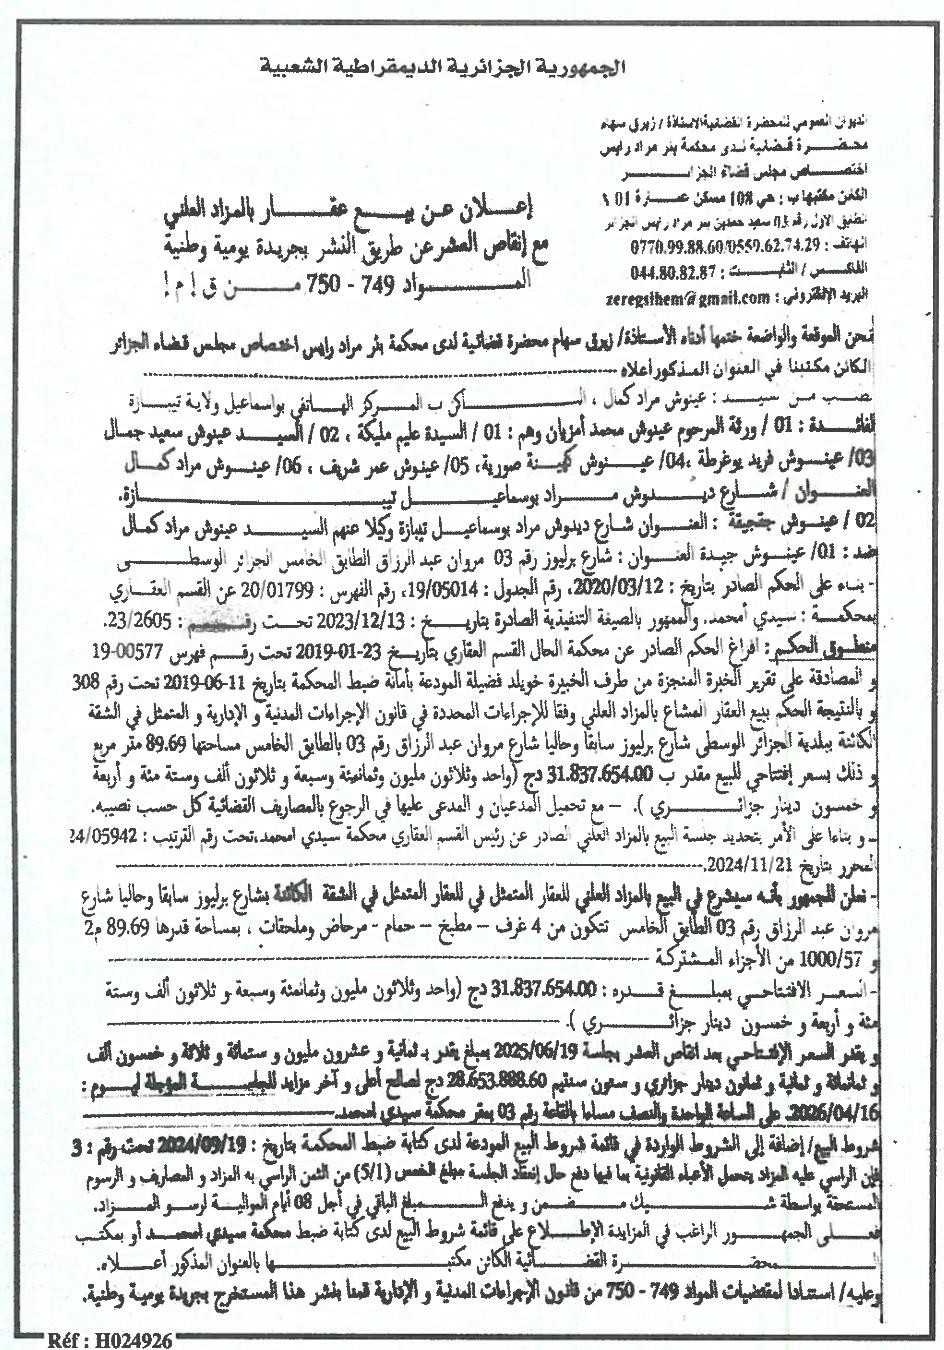 الجمهورية الجزائرية الديمقراطية الشعبية
الديوان العمومي للمحضرة القضائية الاستاذة / زيرق سهام
محضرة قضائية لدى محكمة بئر مراد رايس
اختصاص مجلس قضاء الجزائر
الكائن مكتبها ب : حي 108 مسكن عمارة 01
الطابق الاول رقم 03 سعيد حمدين بئر مراد رايس الجزائر
الهاتف : 0770.99.88.60/0559.62.74.29
الفاكس / الثابت : 044.80.82.87
البريد الإلكتروني : zeregsihem@gmail.com
إعلان عن بيع عقار بالمزاد العلني
مع إنقاص العشر عن طريق النشر بجريدة يومية وطنية
المواد 749 - 750 من ق إ م إ
نحن الموقعة والواضعة ختمها أدناه الأستاذة/ زيرق سهام محضرة قضائية لدى محكمة بئر مراد رايس اختصاص مجلس قضاء الجزائر
الكائن مكتبنا في العنوان المذكور أعلاه
بطلب من سيد : عينوش مراد كمال ، الساكن ب المركز الهاتفي بواسماعيل ولاية تيبازة
لفائدة : 01 / ورثة المرحوم عينوش محمد أمزيان وهم : 01 / السيدة عليم مليكة ، 02 / السيد عينوش سعيد جمال
03/ عينوش فريد يوغرطة ،04/ عينوش كهينة صورية، 05/ عينوش عمر شريف ، 06/ عينوش مراد كمال
العنوان / شارع ديدوش مراد بوسماعيل تيبازة.
02 / عينوش جقجيقة : العنوان شارع ديدوش مراد بوسماعيل تيبازة وكيلا عنهم السيد عينوش مراد كمال
ضد : 01/ عينوش جيدة العنوان : شارع برليوز رقم 03 مروان عبد الرزاق الطابق الخامس الجزائر الوسطى
- بناء على الحكم الصادر بتاريخ : 2020/03/12، رقم الجدول : 19/05014، رقم الفهرس : 20/01799 عن القسم العقاري
بمحكمة : سيدي أمحمد، والممهور بالصيغة التنفيذية الصادرة بتاريخ : 2023/12/13 تحت رقم : 23/2605.
منطوق الحكم : افراغ الحكم الصادر عن محكمة الحال القسم العقاري بتاريخ 23-01-2019 تحت رقم فهرس 00577-19
و المصادقة على تقرير الخبرة المنجزة من طرف الخبيرة خويلد فضيلة المودعة بأمانة ضبط المحكمة بتاريخ 11-06-2019 تحت رقم 308
و بالنتيجة الحكم ببيع العقار المشاع بالمزاد العلني وفقا للإجراءات المحددة في قانون الإجراءات المدنية و الإدارية و المتمثل في الشقة
الكائنة ببلدية الجزائر الوسطى شارع برليوز سابقا وحاليا شارع مروان عبد الرزاق رقم 03 بالطابق الخامس مساحتها 89.69 متر مربع
و ذلك بسعر إفتتاحي للبيع مقدر ب 31.837.654.00 دج (واحد وثلاثون مليون وثمانمئة وسبعة و ثلاثون ألف وستة مئة و أربعة
و خمسون دينار جزائري ). – مع تحميل المدعيان و المدعى عليها في الرجوع بالمصاريف القضائية كل حسب نصيبه.
- و بناءا على الأمر بتحديد جلسة البيع بالمزاد العلني الصادر عن رئيس القسم العقاري محكمة سيدي امحمد،تحت رقم الترتيب : 24/05942
المحرر بتاريخ 2024/11/21.
- نعلن للجمهور بأنه سيشرع في البيع بالمزاد العلني للعقار المتمثل في للعقار المتمثل في الشقة الكائنة بشارع برليوز سابقا وحاليا شارع
مروان عبد الرزاق رقم 03 الطابق الخامس تتكون من 4 غرف – مطبخ – حمام - مرحاض وملحقات ، بمساحة قدرها 89.69 م2
و 1000/57 من الأجزاء المشتركة
- السعر الافتتاحي بمبلغ قدره : 31.837.654.00 دج (واحد وثلاثون مليون وثمانمئة وسبعة و ثلاثون ألف وستة
مئة و أربعة و خمسون دينار جزائري ).
و يقدر السعر الإفتتاحي بعد انقاص العشر بجلسة 2025/06/19 بمبلغ يقدر بـ ثمانية و عشرون مليون و ستمائة و ثلاثة و خمسون ألف
و ثمانمائة و ثمانية و ثمانون دينار جزائري و ستون سنتيم 28.653.888.60 دج لصالح أعلى و آخر مزايد للجلسة المؤجلة ليوم :
2026/04/16. على الساعة الواحدة والنصف مساءا بالقاعة رقم 03 بمقر محكمة سيدي امحمد.
شروط البيع/ إضافة إلى الشروط الواردة في قائمة شروط البيع المودعة لدى كتابة ضبط المحكمة بتاريخ : 2024/09/19 تحت رقم : 3
فإن الراسي عليه المزاد يتحمل الأعباء القانونية بما فيها دفع حال إنعقاد الجلسة مبلغ الخمس (5/1) من الثمن الراسي به المزاد و المصاريف و الرسوم
المستحقة بواسطة شيك مضمن و يدفع المبلغ الباقي في أجل 08 أيام الموالية لرسو المزاد.
فعلى الجمهور الراغب في المزايدة الإطلاع على قائمة شروط البيع لدى كتابة ضبط محكمة سيدي امحمد أو بمكتب
المحضرة القضائية الكائن مكتبها بالعنوان المذكور أعلاه.
وعليه/ استنادا لمقتضيات المواد 749 - 750 من قانون الإجراءات المدنية و الإدارية قمنا بنشر هذا المستخرج بجريدة يومية وطنية.
Réf : H024926